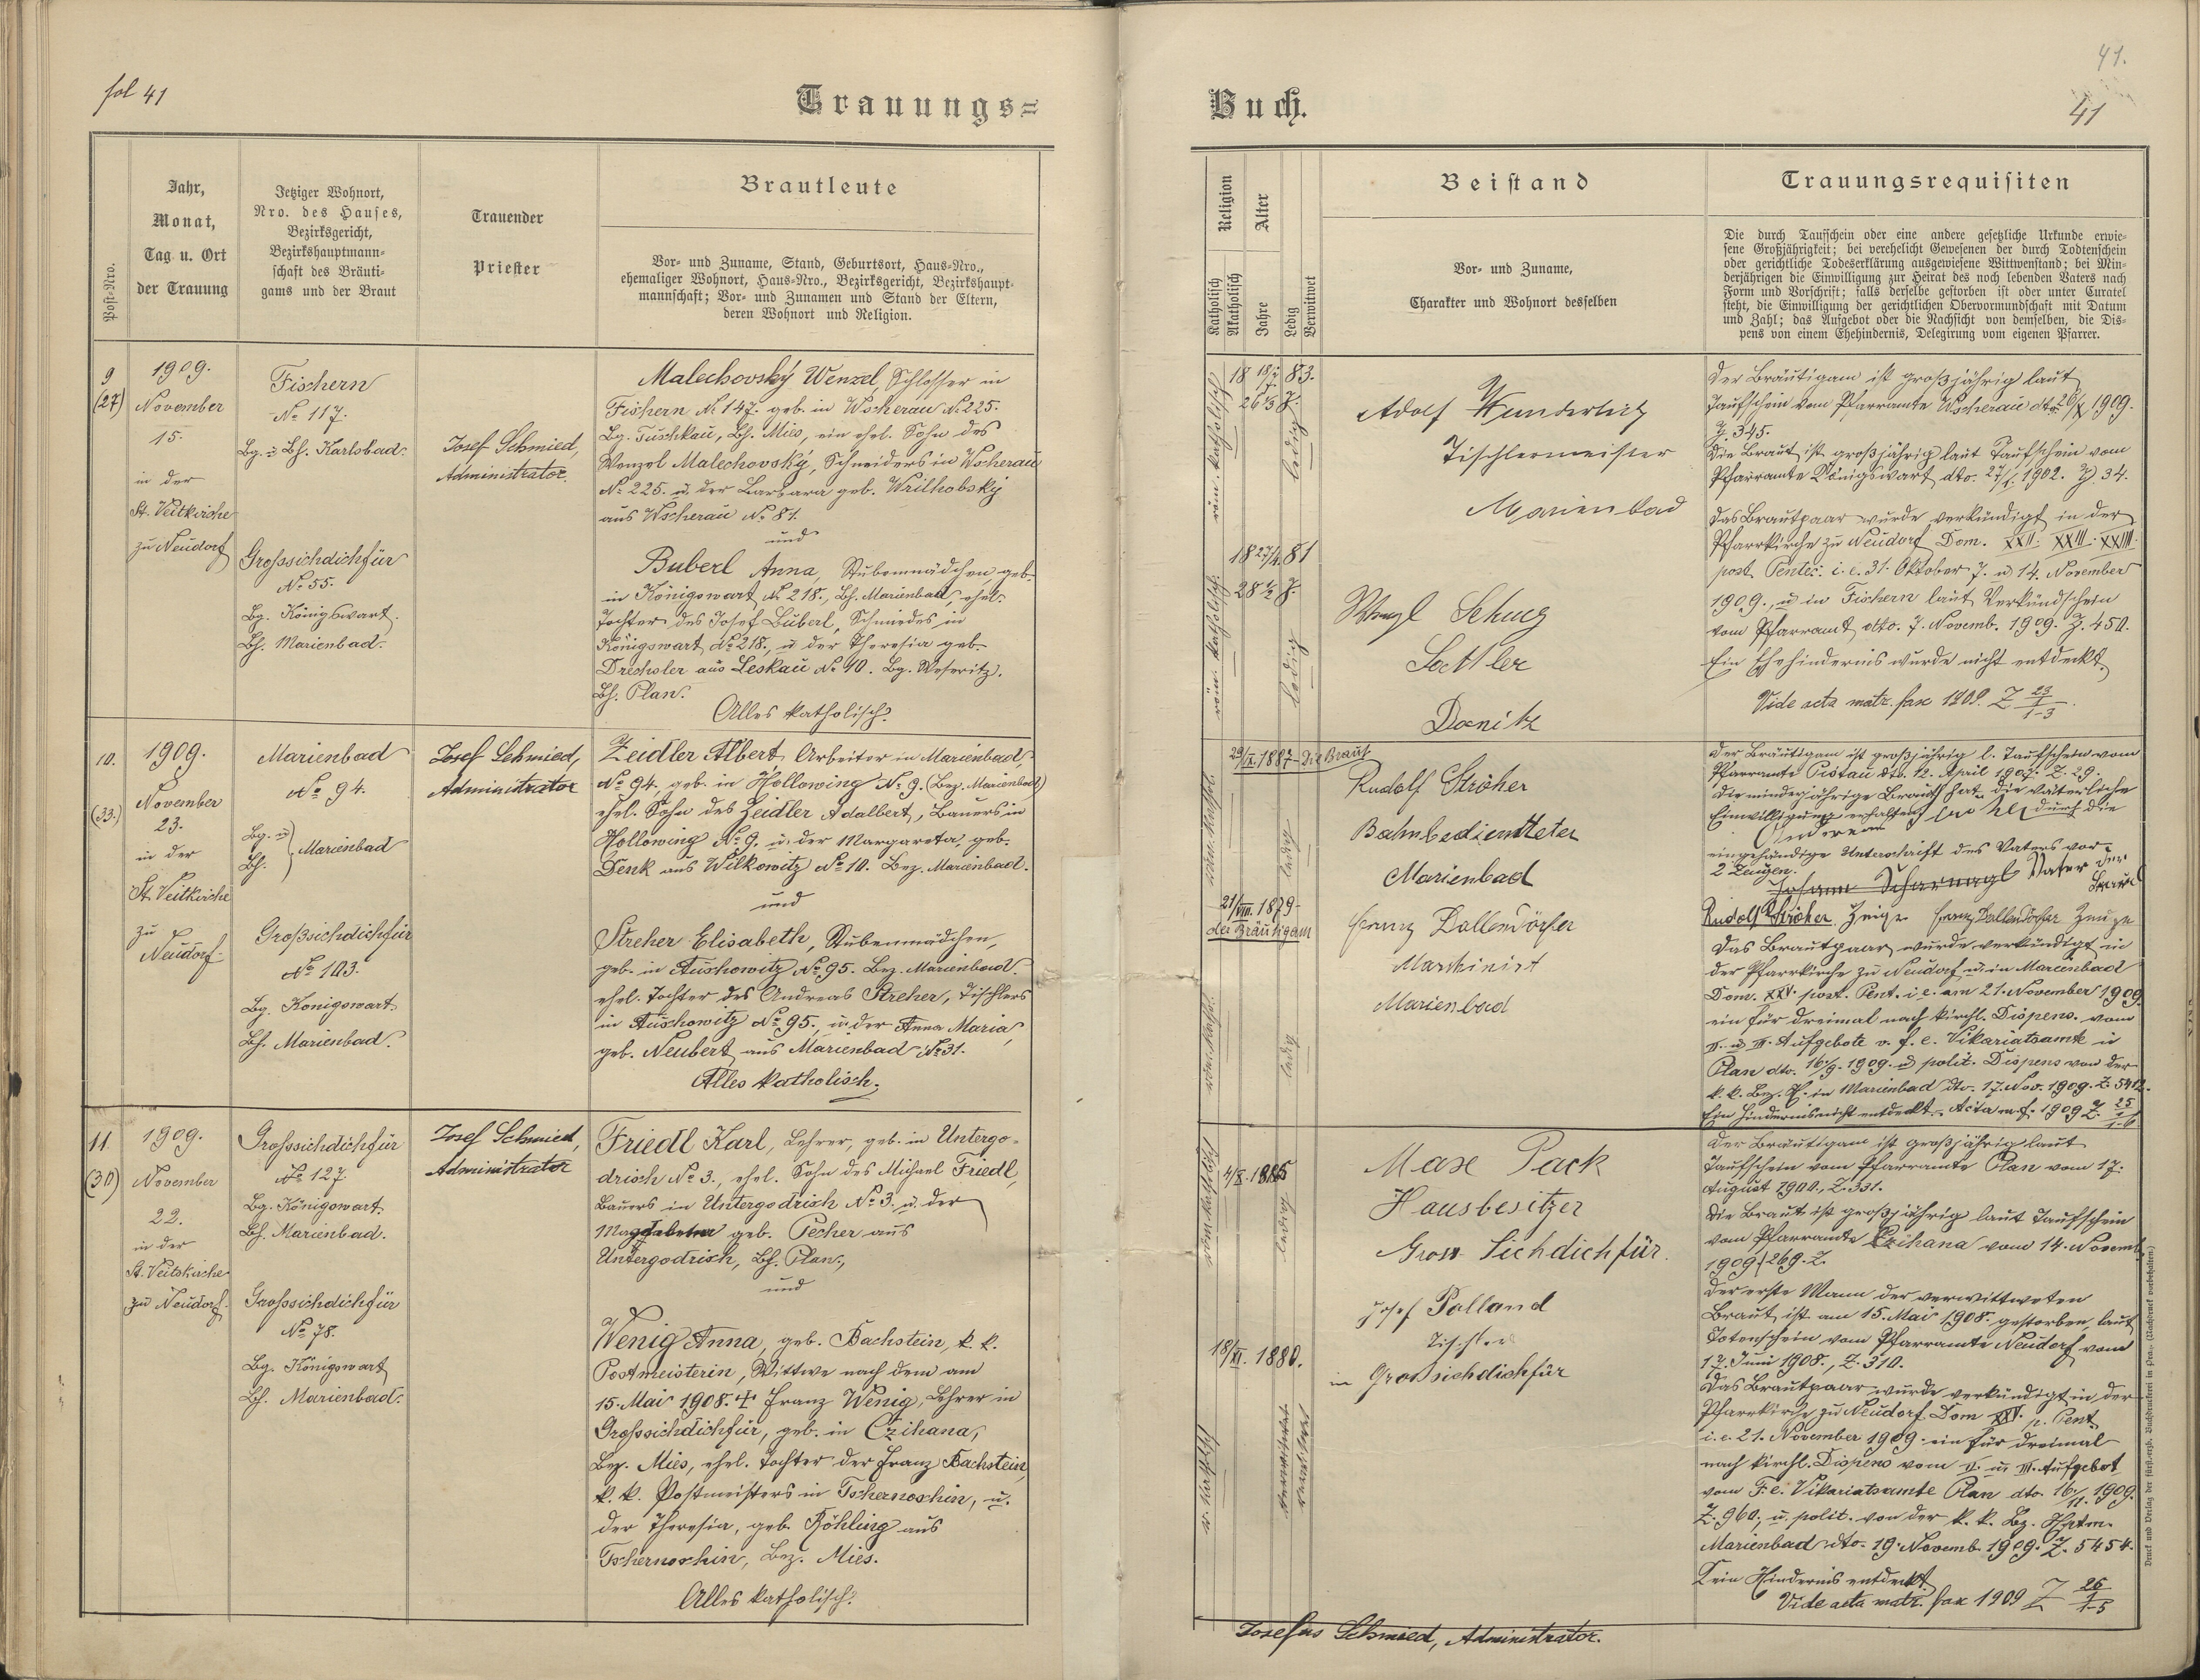 fol 41
Trauungs=
Post-Nro.
Jahr,
Monat,
Tag u. Ort
der Trauung
Jetziger Wohnort,
Nro. des Hauses,
Bezirksgericht,
Bezirkshauptmann-
schaft des Bräuti-
gams und der Braut
Trauender
Priester
Brautleute
Vor- und Zuname, Stand, Geburtsort, Haus-Nro.,
ehemaliger Wohnort, Haus-Nro., Bezirksgericht, Bezirkshaupt-
mannschaft; Vor- und Zunamen und Stand der Eltern,
deren Wohnort und Religion.
9
(27)
1909.
November
15.
in der
St. Veitkirche
zu Neudorf
Fischern
No 117.
Bg. u Bh. Karlsbad.
Grosssichdichfür
No. 55.
Bg. Königswart.
Bh. Marienbad.
Josef Schmied,
Administrator.
Malechovský Wenzel, Schlosser in
Fischern No 147. geb. in Wscherau No 225.
Bg. Tuschkau, Bh. Mies, ein ehel. Sohn des
Wenzel Malechovský, Schneiders in Wscherau
No 225. u. der Barbara geb. Wrilhobský
aus Wscherau No 81.
und
Buberl Anna, Stubenmädchen, geb.
in Königswart No 218., Bh. Marienbad, ehel.
Tochter des Josef Buberl, Schmiedes in
Königswart No 218., u der Theresia geb.
Drechsler aus Leskau No 40. Bg. Weseritz.
Bh. Plan.
Alles katholisch.
10.
(33.)
1909.
November
23.
in der
St. Veitkirche
zu
Neudorf.
Marienbad
No 94.
Bg. u
Bh. } Marienbad
Großsichdichfür
No 103.
Bg. Königswart.
Bh. Marienbad.
Josef Schmied,
Administrator
Zeidler Albert, Arbeiter in Marienbad,
No 94, geb. in Hollowing No 9. (Bez. Marienbad)
ehel. Sohn des Zeidler Adalbert, Bauers in
Hollowing No 9. u. der Margareta, geb.
Denk aus Wilkowitz No 10. Bez. Marienbad.
und
Streher Elisabeth, Stubenmädchen,
geb. in Auschowitz No 95. Bez. Marienbad.
ehel. Tochter des Andreas Streher, Tischlers
in Auschowitz No 95., u. der Anna Maria,
geb. Neubert aus Marienbad No 31.
Alles katholisch.
11
(30)
1909.
November
22.
in der
St. Veitskirche
zu Neudorf.
Grosssichdichfür
No 127.
Bg. Königswart.
Bh. Marienbad.
Grosssichdichfür
No 78.
Bg. Königswart
Bh. Marienbad.
Josef Schmied,
Administrator
Friedl Karl, Lehrer, geb. in Untergo-
drisch No 3., ehel. Sohn des Michael Friedl,
Bauers in Untergodrisch No 3. u. der
Magdalena geb. Pecher aus
Untergodrisch, Bh. Plan,
und
Wenig Anna, geb. Bachstein, k. k.
Postmeisterin, Wittwe nach dem am
15. Mai 1908. + Franz Wenig, Lehrer in
Grosssichdichfür, geb. in Czihana,
Bez. Mies, ehel. Tochter der Franz Bachstein
k. k. Postmeisters in Tschernoschin, u.
der Theresia, geb. Röhling aus
Tschernoschin, Bez. Mies.
Alles katholisch.
Buch.
41.
41
Religion
Katholisch
Akatholisch
Alter
Jahre
Ledig
Verwitwet
Beistand
Vor- und Zuname,
Charakter und Wohnort desselben
Trauungsrequisiten
Die durch Taufschein oder eine andere gesetzliche Urkunde erwie-
sene Großjährigkeit; bei verehelicht Gewesenen der durch Todtenschein
oder gerichtliche Todeserklärung ausgewiesene Wittwenstand; bei Min-
derjährigen die Einwilligung zur Heirat des noch lebenden Vaters nach
Form und Vorschrift; falls derselbe gestorben ist oder unter Curatel
steht, die Einwilligung der gerichtlichen Obervormundschaft mit Datum
und Zahl; das Aufgebot oder die Nachsicht von demselben, die Dis-
pens von einem Ehehindernis, Delegirung vom eigenen Pfarrer.
röm. katholisch
ledig
röm. katholisch
18 27/4. 81
28 1/2 J.
ledig
Adolf Wunderlich
Tischlermeister
Marienbad
Wenzl Schug
Sattler
Donitz
Der Bräutigam ist großjährig laut
Taufschein vom Pfarramte Wscherau dto 20/X 1909.
Z. 345.
Die Braut ist großjährig laut Taufschein vom
Pfarramte Königswart dto. 27/1. 1902. Z. 34.
Das Brautpaar wurde verkündigt in der
Pfarrkirche zu Neudorf Dom. XXII. XXIII. XXIIII.
post. Pentec. i. e. 31. Oktober 7. u 14. November
1909., u in Fischern laut Verkündschein
vom Pfarramt dto. 7. Novemb. 1909. Z. 450.
Ein Ehehindernis wurde nicht entdeckt.
Vide acta matr. fasc 1909. Z 23/1 1-3
29/IX. 1887 - Die Braut
ledig
21/VIII. 1879
der Bräutigam
ledig
Rudolf Ströher
Bahnbediensteter
Marienbad
Franz Dallendörfer
Maschinist
Marienbad
Der Bräutigam ist großjährig l. Taufschein vom
Pfarramte Pistau dto. 12. April 1907. Z. 29.
Die minderjährige Braut hat die väterliche
Einwilligung erhalten durch die
eingehändige Unterschrift des Vaters vor
2 Zeugen.
Johann Scharnagl Vater der Braut
Rudolf Ströher Zeuge Franz Dallendörfer Zeuge
Das Brautpaar wurde verkündigt in
der Pfarrkirche zu Neudorf u. in Marienbad
Dom. XXV. post. Pent. i. e. am 21. November 1909.
ein für dreimal nach kirchl. Dispens. vom
II. u III. Aufgebote v. f. e. Vikariatsamte in
Plan dto. 16/9. 1909. u polit. Dispens von der
k. k. Bez. H. in Marienbad dto. 17. Nov. 1909. Z. 5412.
Ein Hindernis nicht entdeckt. Acta m. f. 1909 Z. 25/1 1-6
röm. katholisch
4/X. 1885
ledig
18/XI. 1880.
r. kathol.
verwitwet
Max Pack
Hausbesitzer
Gross Sichdichfür.
Josef Palland
Tischler
in Grossichdichfür
Der Bräutigam ist großjährig laut
Taufschein vom Pfarramte Plan vom 17.
August 1900., Z. 331.
Die Braut ist großjährig laut Taufschein
vom Pfarramte Czihana vom 14. Novemb.
1909. 269. Z.
Der erste Mann der verwittweten
Braut ist am 15. Mai 1908. gestorben laut
Totenschein vom Pfarramte Neudorf vom
12. Juni 1908., Z. 310.
Das Brautpaar wurde verkündigt in der
Pfarrkirche zu Neudorf Dom XXV. p. Pent.
i. e. 21. November 1909. ein für dreimal
nach kirchl. Dispens vom II. u. III. Aufgebot
vom F. e. Vikariatsamte Plan dto. 16./11. 1909.
Z. 960, u. polit. von der k. k. Bz. Hptm.
Marienbad dto. 19. Novemb. 1909. Z. 5454.
Kein Hindernis entdeckt.
Vide acta matr. fasc 1909 Z 26/1 1-5
Josefus Schmied, Administrator.